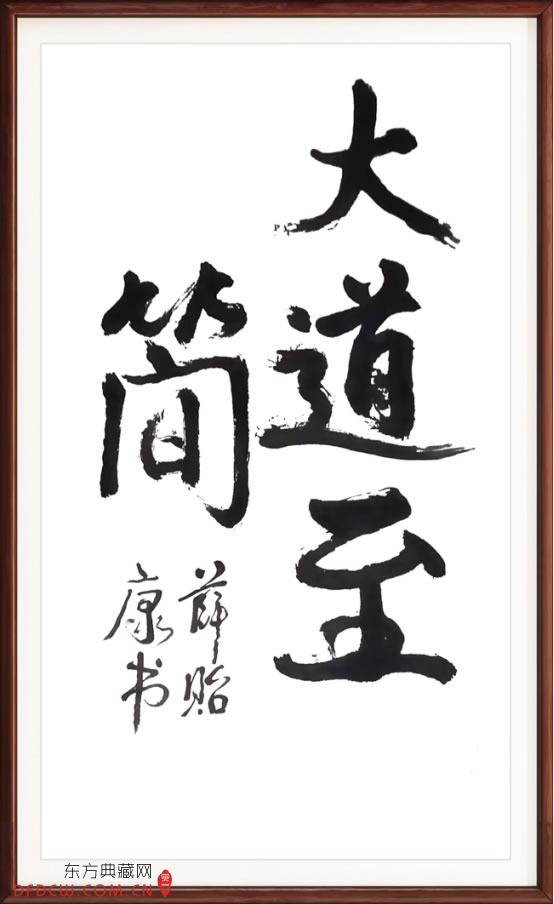 大道至
简
薛贻
康书
东方典藏网
DFDCW.COM.CN